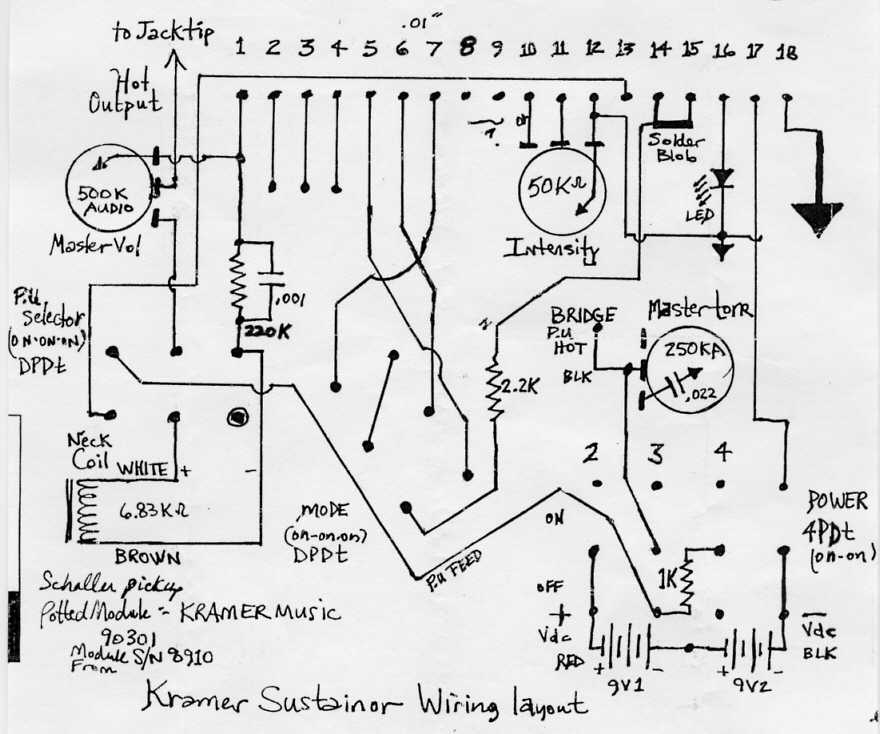 .01"
to Jacktip
1 2 3 4 5 6 7 8 9 10 11 12 13 14 15 16 17 18
Hot
Output
or
?
Solder
Blob
500K
AUDIO
50KΩ
LED
Master Vol
Intensity
.001
220K
P.U.
Selector
(ON-ON-ON)
DPDt
BRIDGE
P.U.
HOT
BLK
Master tone
250KA
.022
2.2K
Neck
Coil
WHITE +
-
6.83KΩ
BROWN
MODE
(on-on.on)
DPDt
2 3 4
ON
P.U FEED
POWER
4PDt
(on-on)
OFF
1K
+
Vdc
RED
-
Vdc
BLK
+ -
9V1
+ -
9V2
Schaller pickup
Potted Module :- KRAMER MUSIC
90301
Module S/N 8910
From
Kramer Sustainor Wiring layout